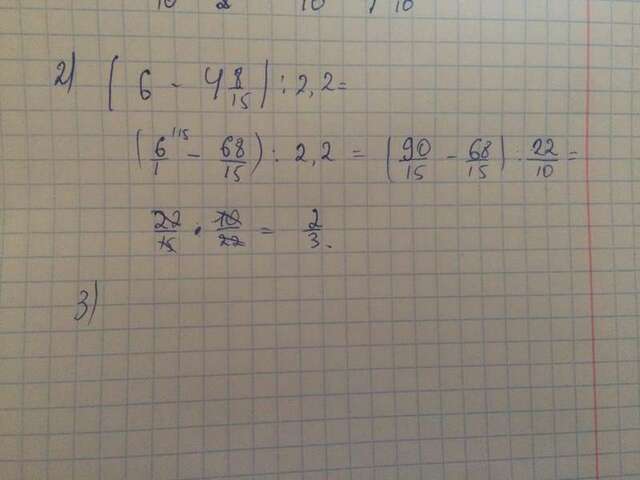 10 2 10 10
2) (6 - 4 8/15) : 2,2 =
(6/1 ^15 - 68/15) : 2,2 = (90/15 - 68/15) : 22/10 =
22/15 · 10/22 = 2/3.
3)